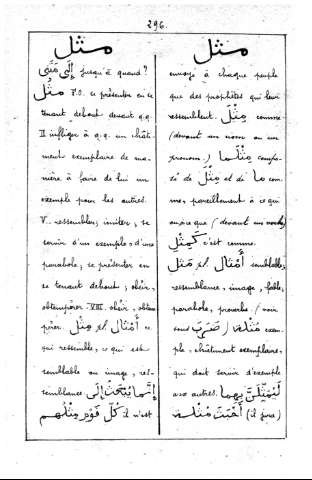 296.
مثل
إِلَى مَتَى jusqu'à quand?
مَثَلَ F.O. se présenter en se
tenant debout devant q.q.
II infliger à q.q. un châti-
ment exemplaire de ma-
nière à faire de lui un
exemple pour les autres.
V_ ressembler; imiter; se
servir d'un exemple, d'une
parabole; se présenter en
se tenant debout; obéir,
obtempérer. VIII. obéir, obtem
pérer. مِثْل pl. أَمْثَال ce
qui ressemble, ce qui est
semblable ou image, res-
semblance إِنَّمَا يُبْعَثُ إِلَى
كُلِّ قَوْمٍ مِثْلُهُم il n'est
مثل
envoyé à chaque peuple
que des prophètes qui leur
ressemblent. مِثْلَ comme
(devant un nom ou un
pronom.) مِثْلَمَا compo-
sé de مِثْل et de ما com
me, pareillement à ce qui
ou à ce que (devant un verbe)
كَمِثْلِ c'est comme.
مَثَل pl. أَمْثَال semblable,
ressemblance, image, fable,
parabole, proverbe (voir
sous ضَرَبَ) مُثْلَة exem-
ple, châtiment exemplaire,
qui doit servir d'exemple
aux autres. لَيُمَثِّلَنَّ بِهِمَا
أَخْبَثَ مُثْلَة (il jura)